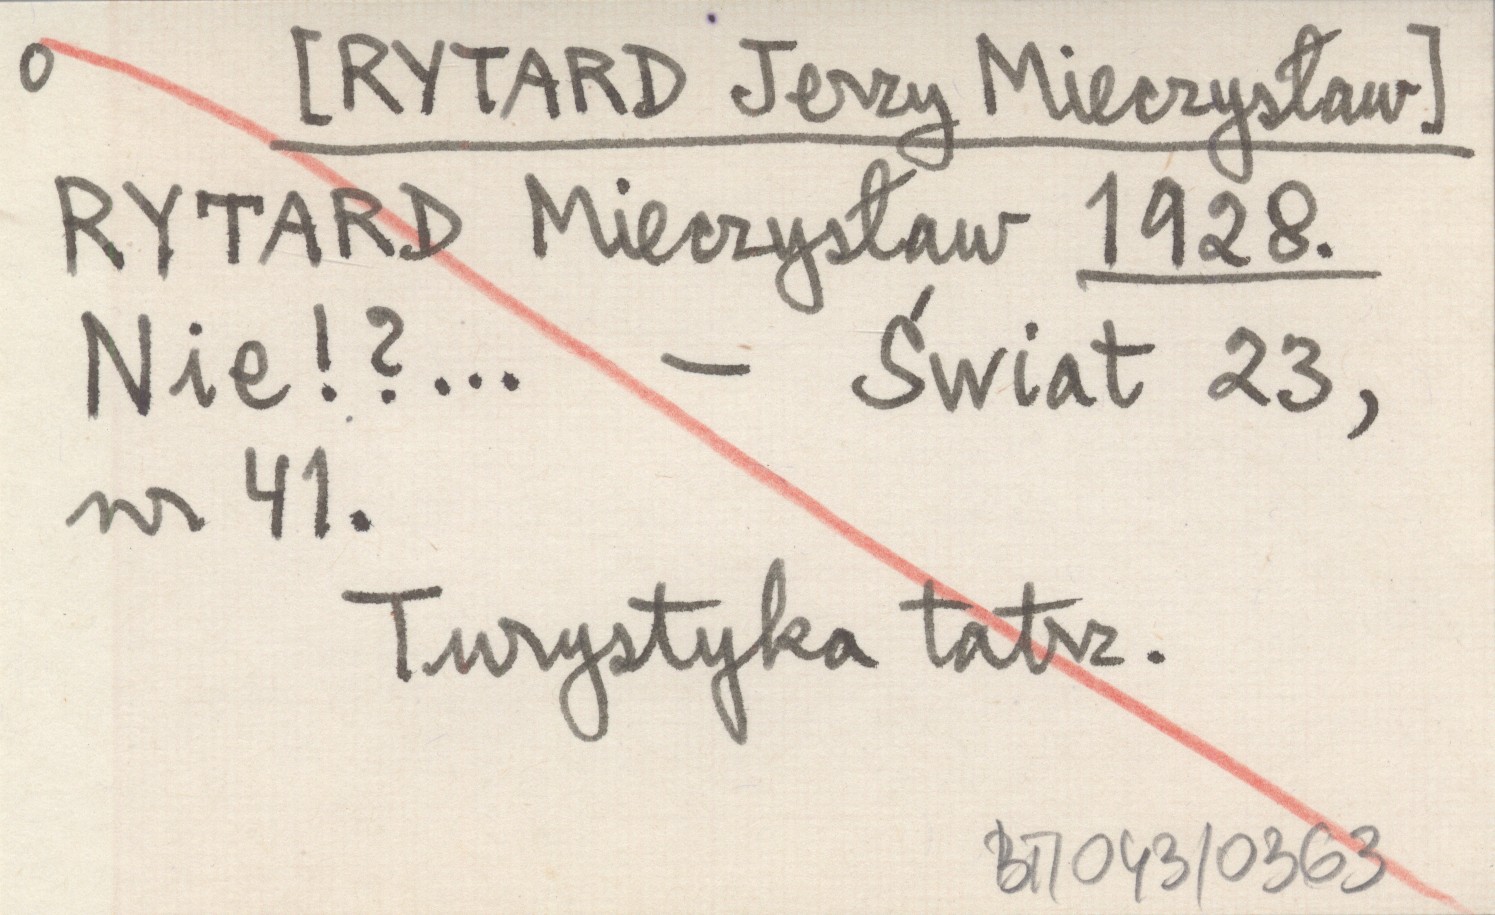 o [RYTARD Jerzy Mieczysław]
RYTARD Mieczysław 1928.
Nie!?... – Świat 23,
nr 41.
Turystyka tatrz.
BT/043/0363